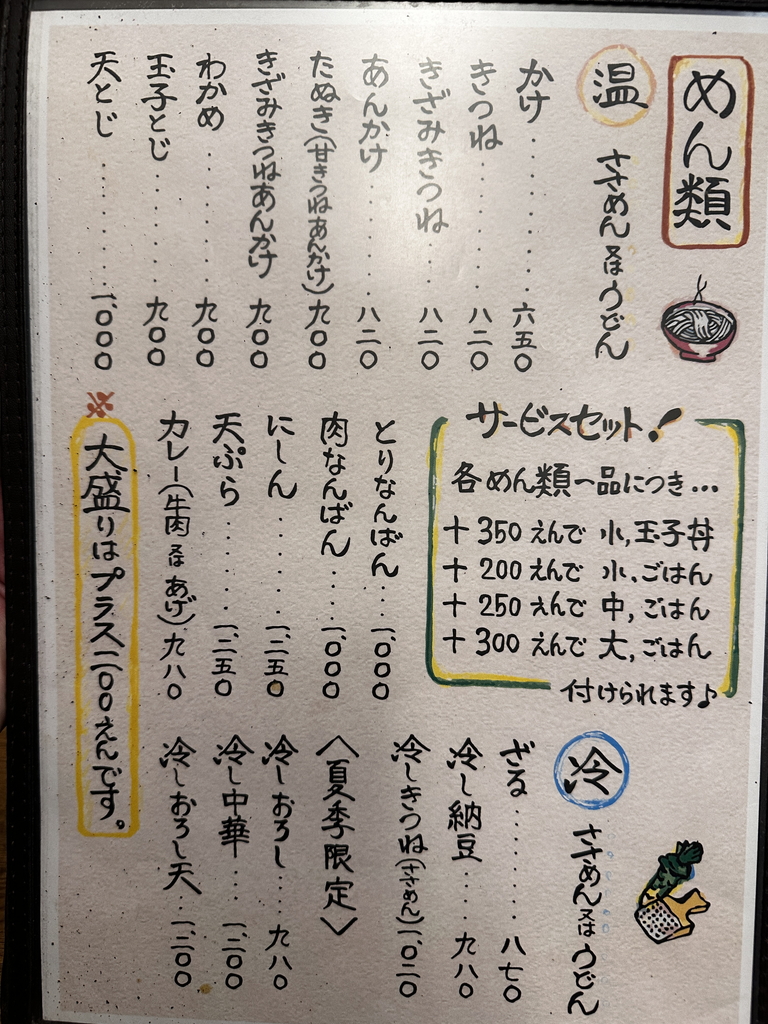 めん類
温 ささめん又はうどん
かけ………六五〇
きつね………八二〇
きざみきつね……八二〇
あんかけ………八二〇
たぬき(甘きつねあんかけ)九〇〇
きざみきつねあんかけ 九〇〇
わかめ………九〇〇
玉子とじ………九〇〇
天とじ………一、〇〇〇
サービスセット!
各めん類一品につき…
+350えんで 小,玉子丼
+200えんで 小,ごはん
+250えんで 中,ごはん
+300えんで 大,ごはん
付けられます♪
とりなんばん…一、〇〇〇
肉なんばん…一、〇〇〇
にしん……一、二五〇
天ぷら……一、二五〇
カレー(牛肉又はあげ)九八〇
※大盛りはプラス二〇〇えんです。
冷 ささめん又はうどん
ざる………八七〇
冷し納豆…九八〇
冷しきつね(ささめん)一、〇二〇
〈夏季限定〉
冷しおろし…九八〇
冷し中華…一、二〇〇
冷しおろし天…一、二〇〇